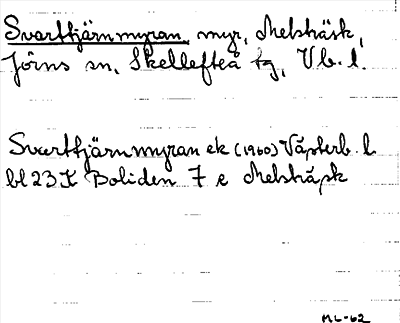 Svarttjärnmyran, myr, Melsträsk,
Jörns sn, Skellefteå tg, Vb. l.
Svarttjärnmyran ek (1960) Västerb. l.
bl 23 K Boliden 7 e Melsträsk
ML-62